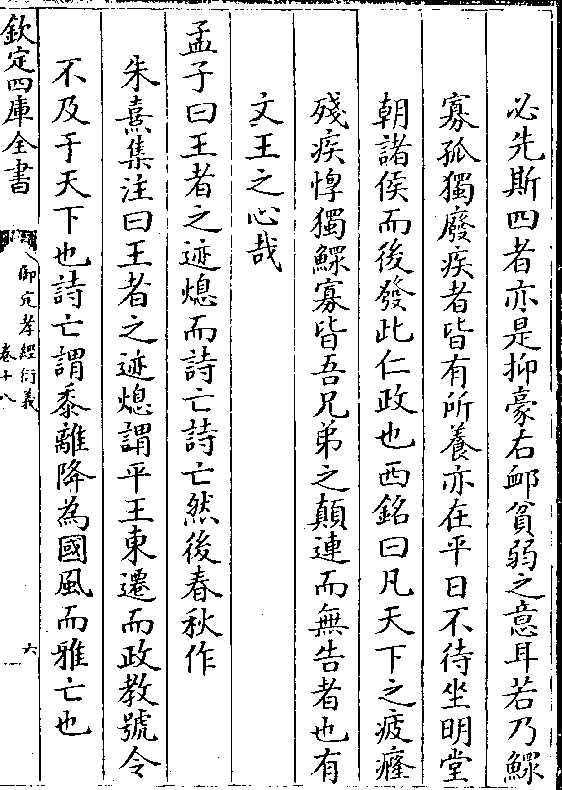 必先斯四者亦是抑豪右䘏貧弱之意耳若乃鰥
寡孤獨廢疾者皆有所養亦在平日不待坐明堂
朝諸侯而後發此仁政也西銘曰凡天下之疲癃
殘疾惸獨鰥寡皆吾兄弟之顛連而無告者也有
文王之心哉
孟子曰王者之迹熄而詩亡詩亡然後春秋作
朱熹集注曰王者之迹熄謂平王東遷而政教號令
不及于天下也詩亡謂黍離降為國風而雅亡也
欽定四庫全書
御定孝經衍義
卷十八
六